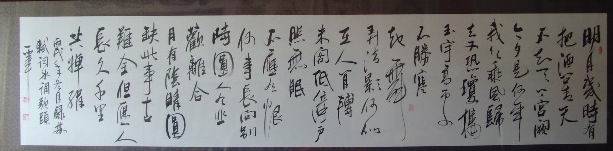 明月幾時有
把酒問青天
不知天上宮闕
今夕是何年
我欲乘風歸
去又恐瓊樓
玉宇高處
不勝寒
起舞
弄清影何似
在人間轉
朱閣低綺戶
照無眠
不應有恨
何事長向別
時圓人有悲
歡離合
月有陰晴圓
缺此事古
難全但願人
長久千里
共嬋娟
錄蘇
軾詞水調歌頭